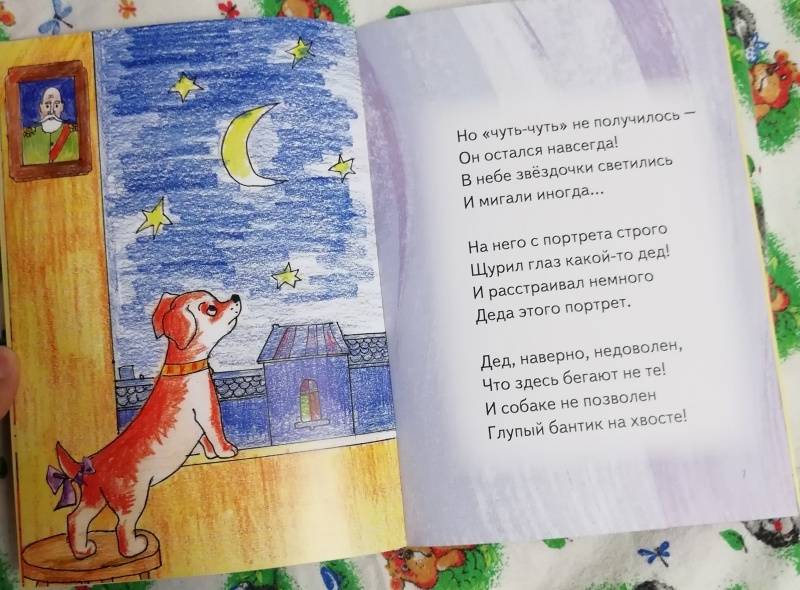 Но «чуть-чуть» не получилось –
Он остался навсегда!
В небе звёздочки светились
И мигали иногда...
На него с портрета строго
Щурил глаз какой-то дед!
И расстраивал немного
Деда этого портрет.
Дед, наверно, недоволен,
Что здесь бегают не те!
И собаке не позволен
Глупый бантик на хвосте!